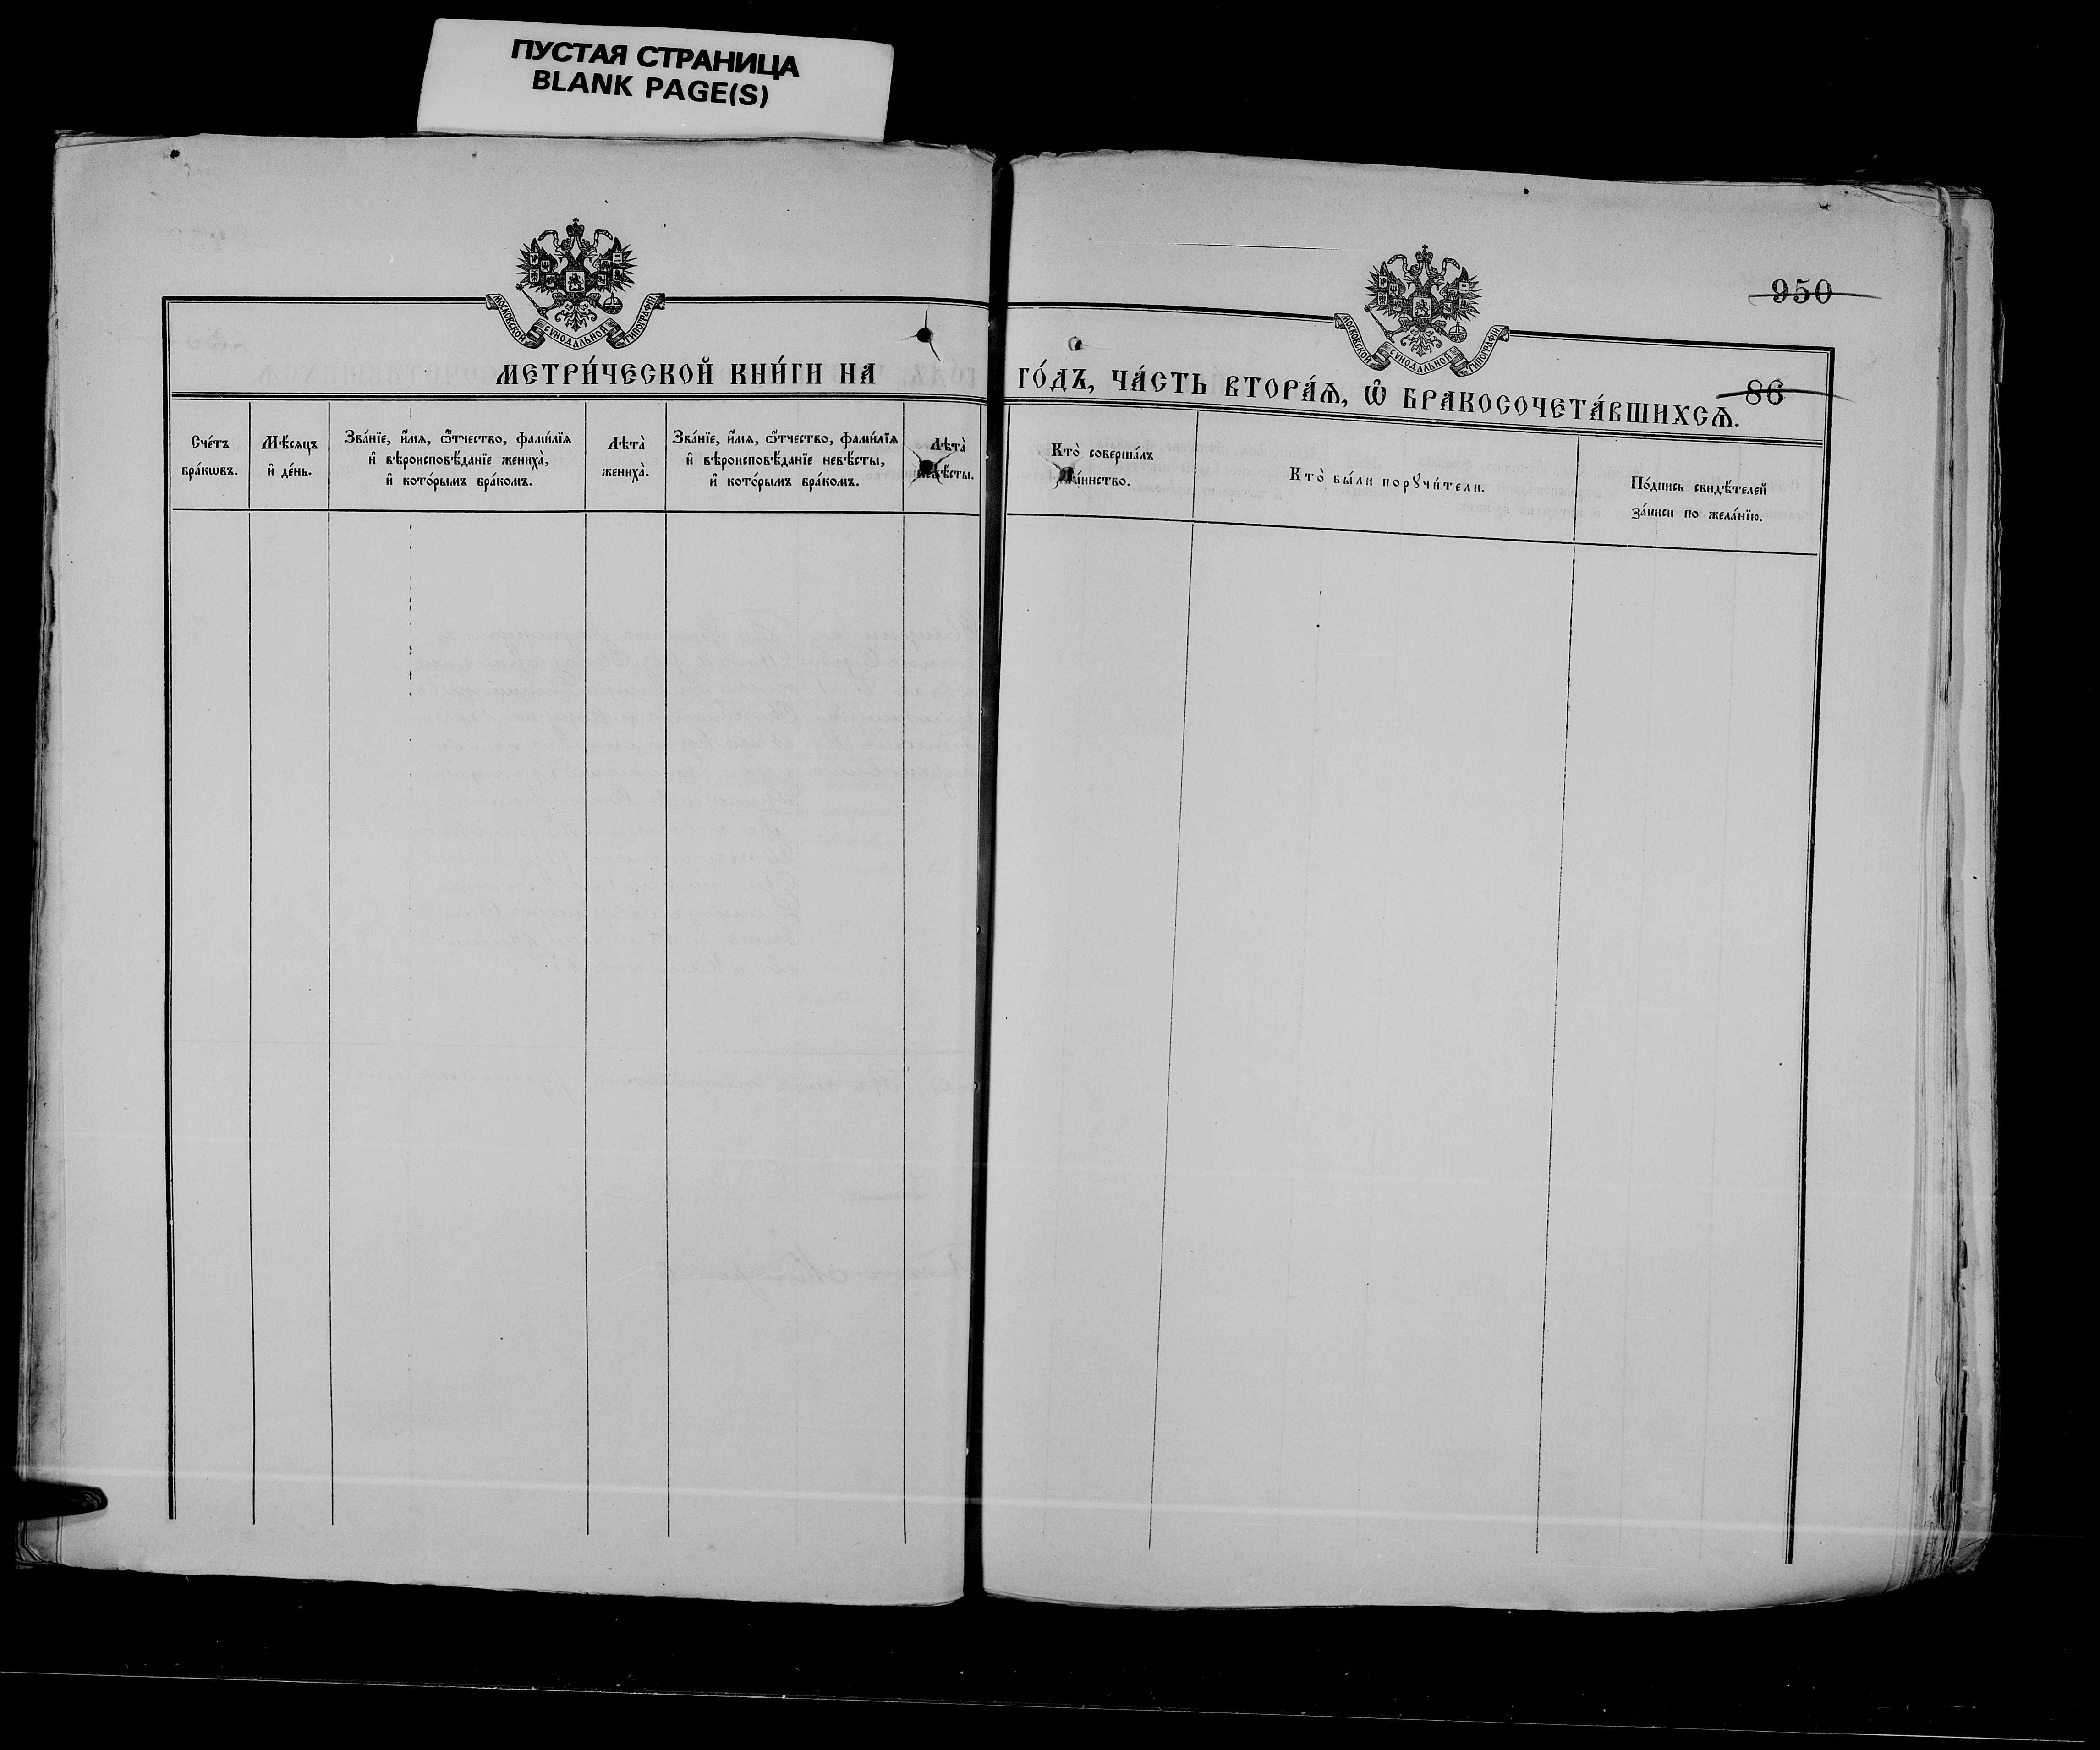 ПУСТАЯ СТРАНИЦА
BLANK PAGE(S)
МОСКОВСКОЙ СѴНОДАЛЬНОЙ ТИПОГРАФІИ
МЕТРИ́ЧЕСКОЙ КНИ́ГИ НА
Сче́тъ
бра́кѡвъ.
Мѣ́сяцъ
и҆ де́нь.
Зва́нїе, и҆́мя, ѻ҆́тчество, фами́лїя
и҆ вѣроисповѣ́данїе жениха̀,
и҆ кото́рымъ бра́комъ.
Лѣта̀
жениха̀.
Зва́нїе, и҆́мя, ѻ҆́тчество, фами́лїя
и҆ вѣроисповѣ́данїе невѣ́сты,
и҆ кото́рымъ бра́комъ.
Лѣта̀
невѣ́сты.
950
МОСКОВСКОЙ СѴНОДАЛЬНОЙ ТИПОГРАФІИ
86
ГО́ДЪ, ЧА́СТЬ ВТОРА́Ѧ, Ѡ҆ БРАКОСОЧЕТА́ВШИХСѦ.
Кто̀ соверша́лъ
та́инство.
Кто̀ бы́ли порꙋчи́тели.
По́дпись свидѣ́телей
за́писи по жела́нїю.